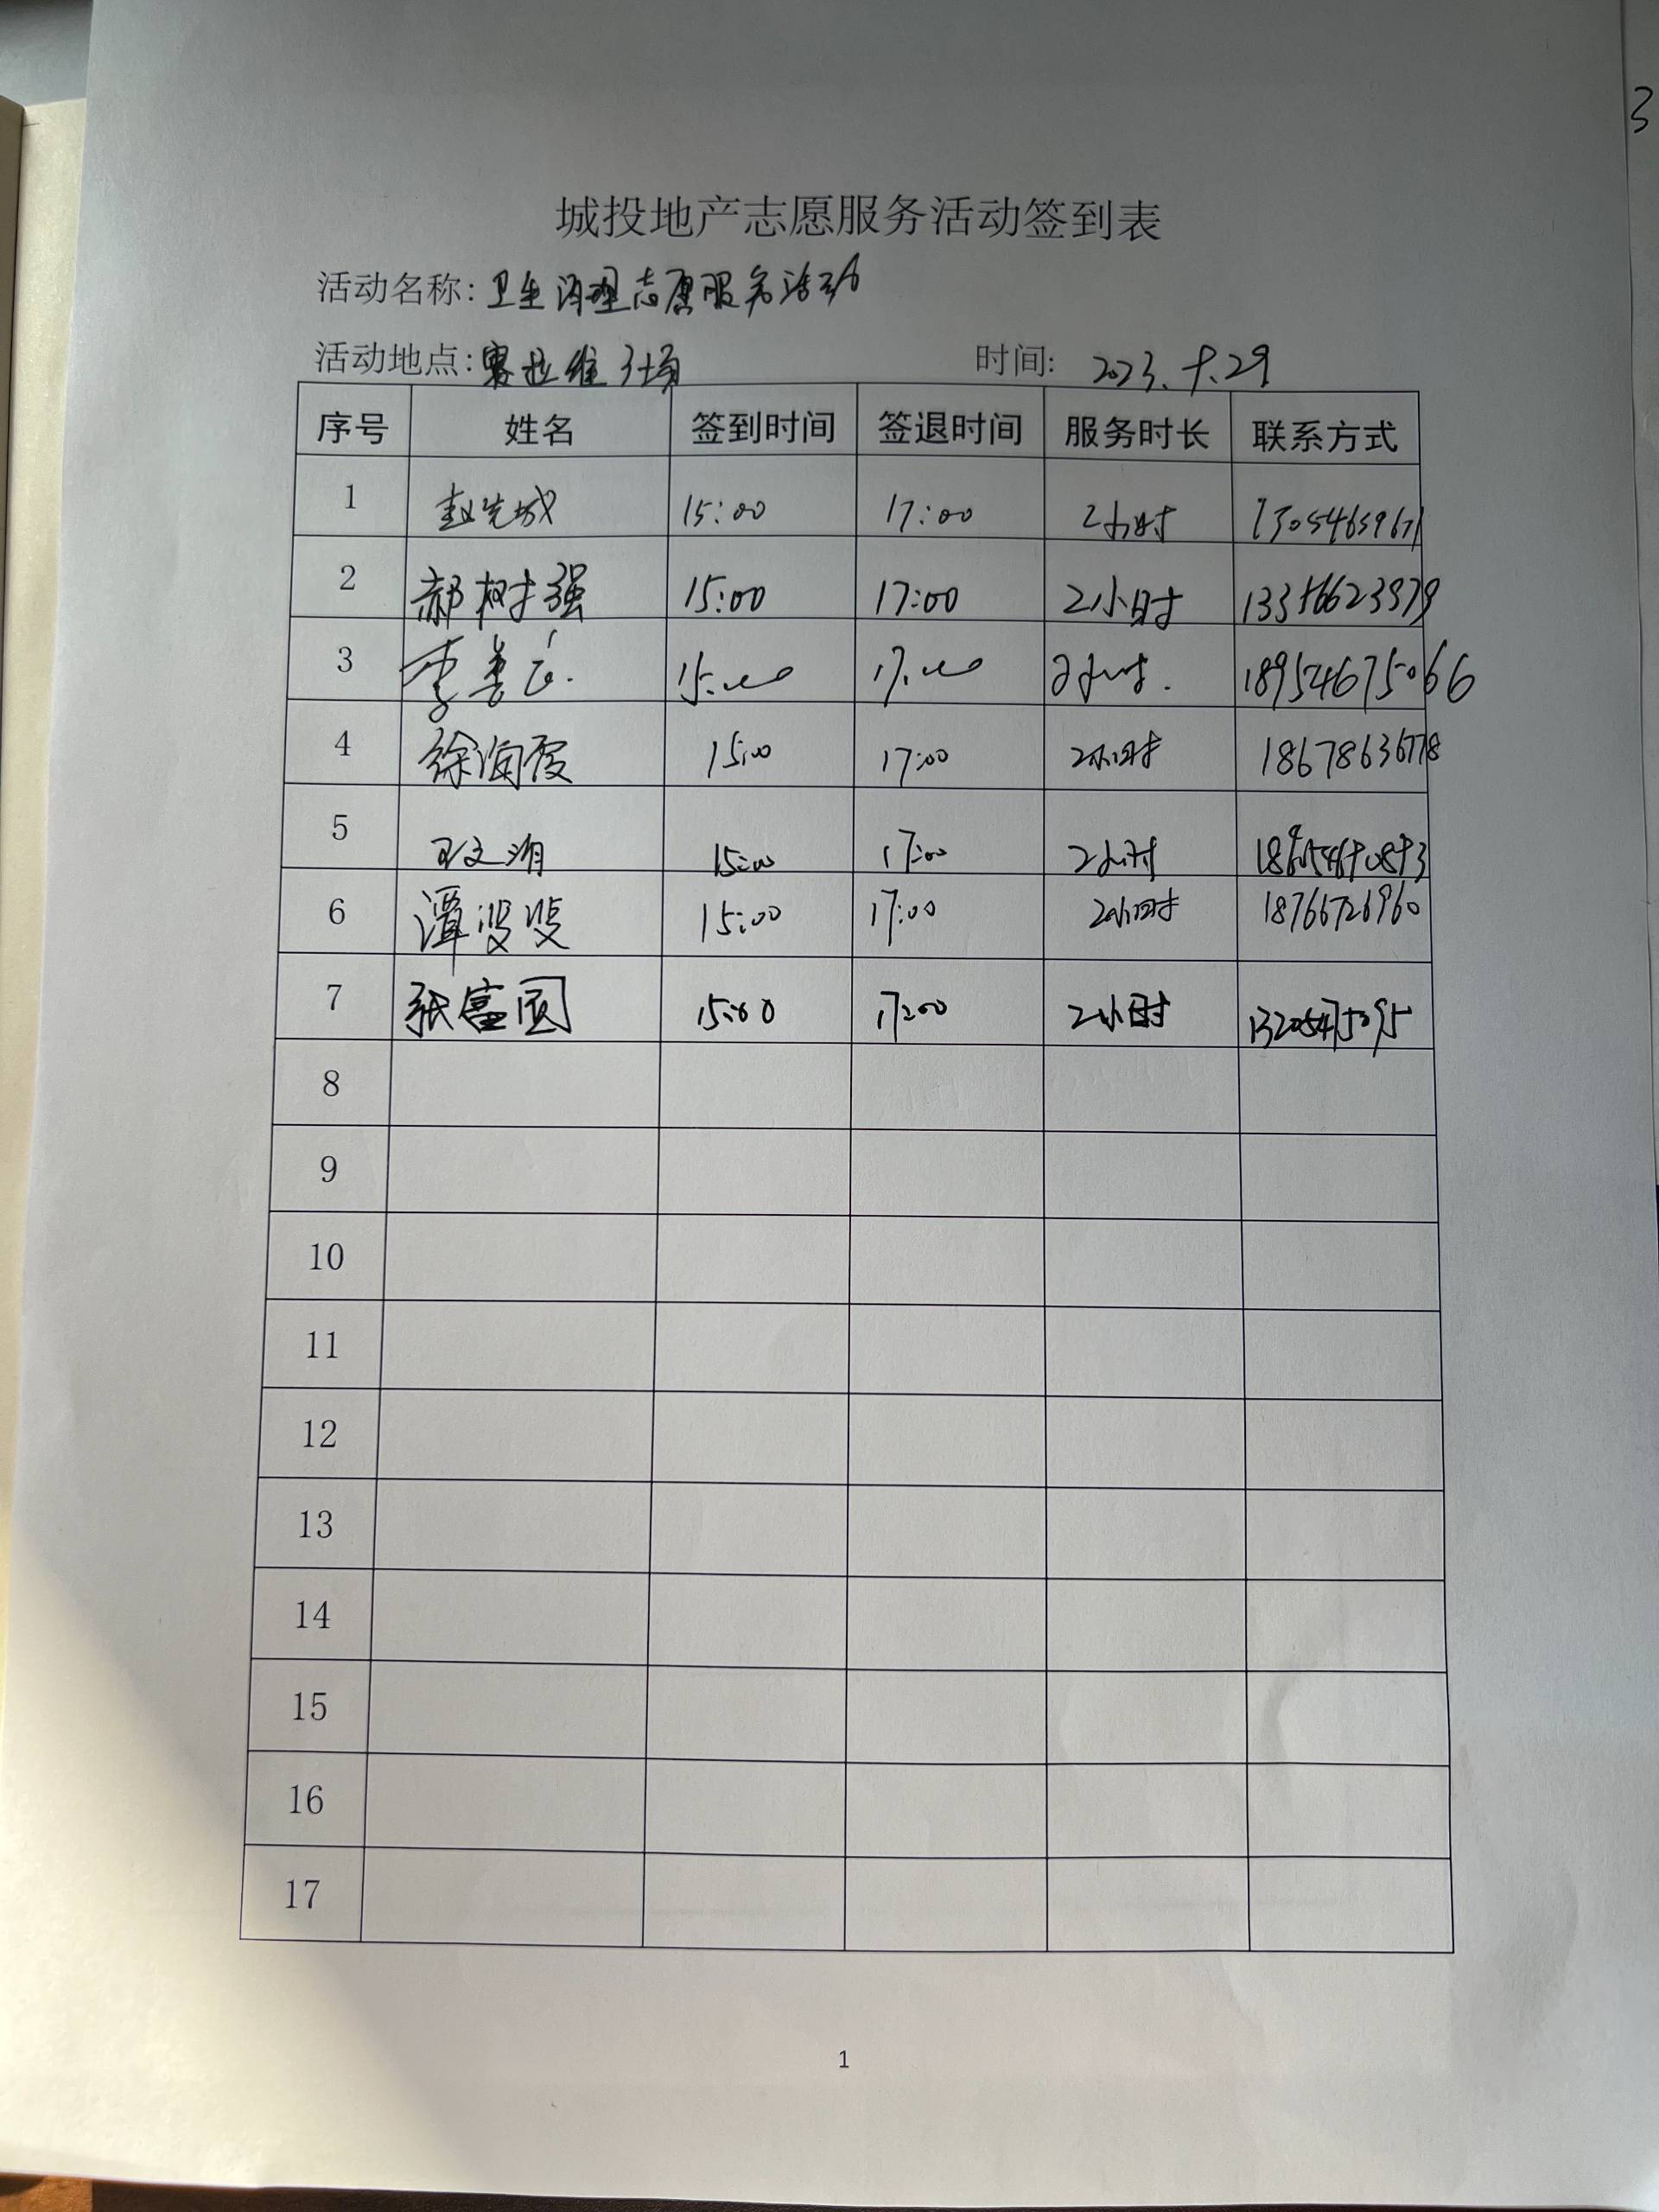 3
城投地产志愿服务活动签到表
活动名称: 卫生清理志愿服务活动
活动地点: 赛拉维 时间: 2023.9.29
序号 姓名 签到时间 签退时间 服务时长 联系方式
1 赵先城 15:00 17:00 2小时 13054659671
2 郝树强 15:00 17:00 2小时 13356623979
3 李善 15:00 17:00 2小时. 18954675066
4 徐润霞 15:00 17:00 2小时 18678636778
5 王文 15:00 17:00 2小时
6 潭斐斐 15:00 17:00 2小时 18766726960
7 张富园 15:00 17:00 2小时 13205475095
8
9
10
11
12
13
14
15
16
17
1